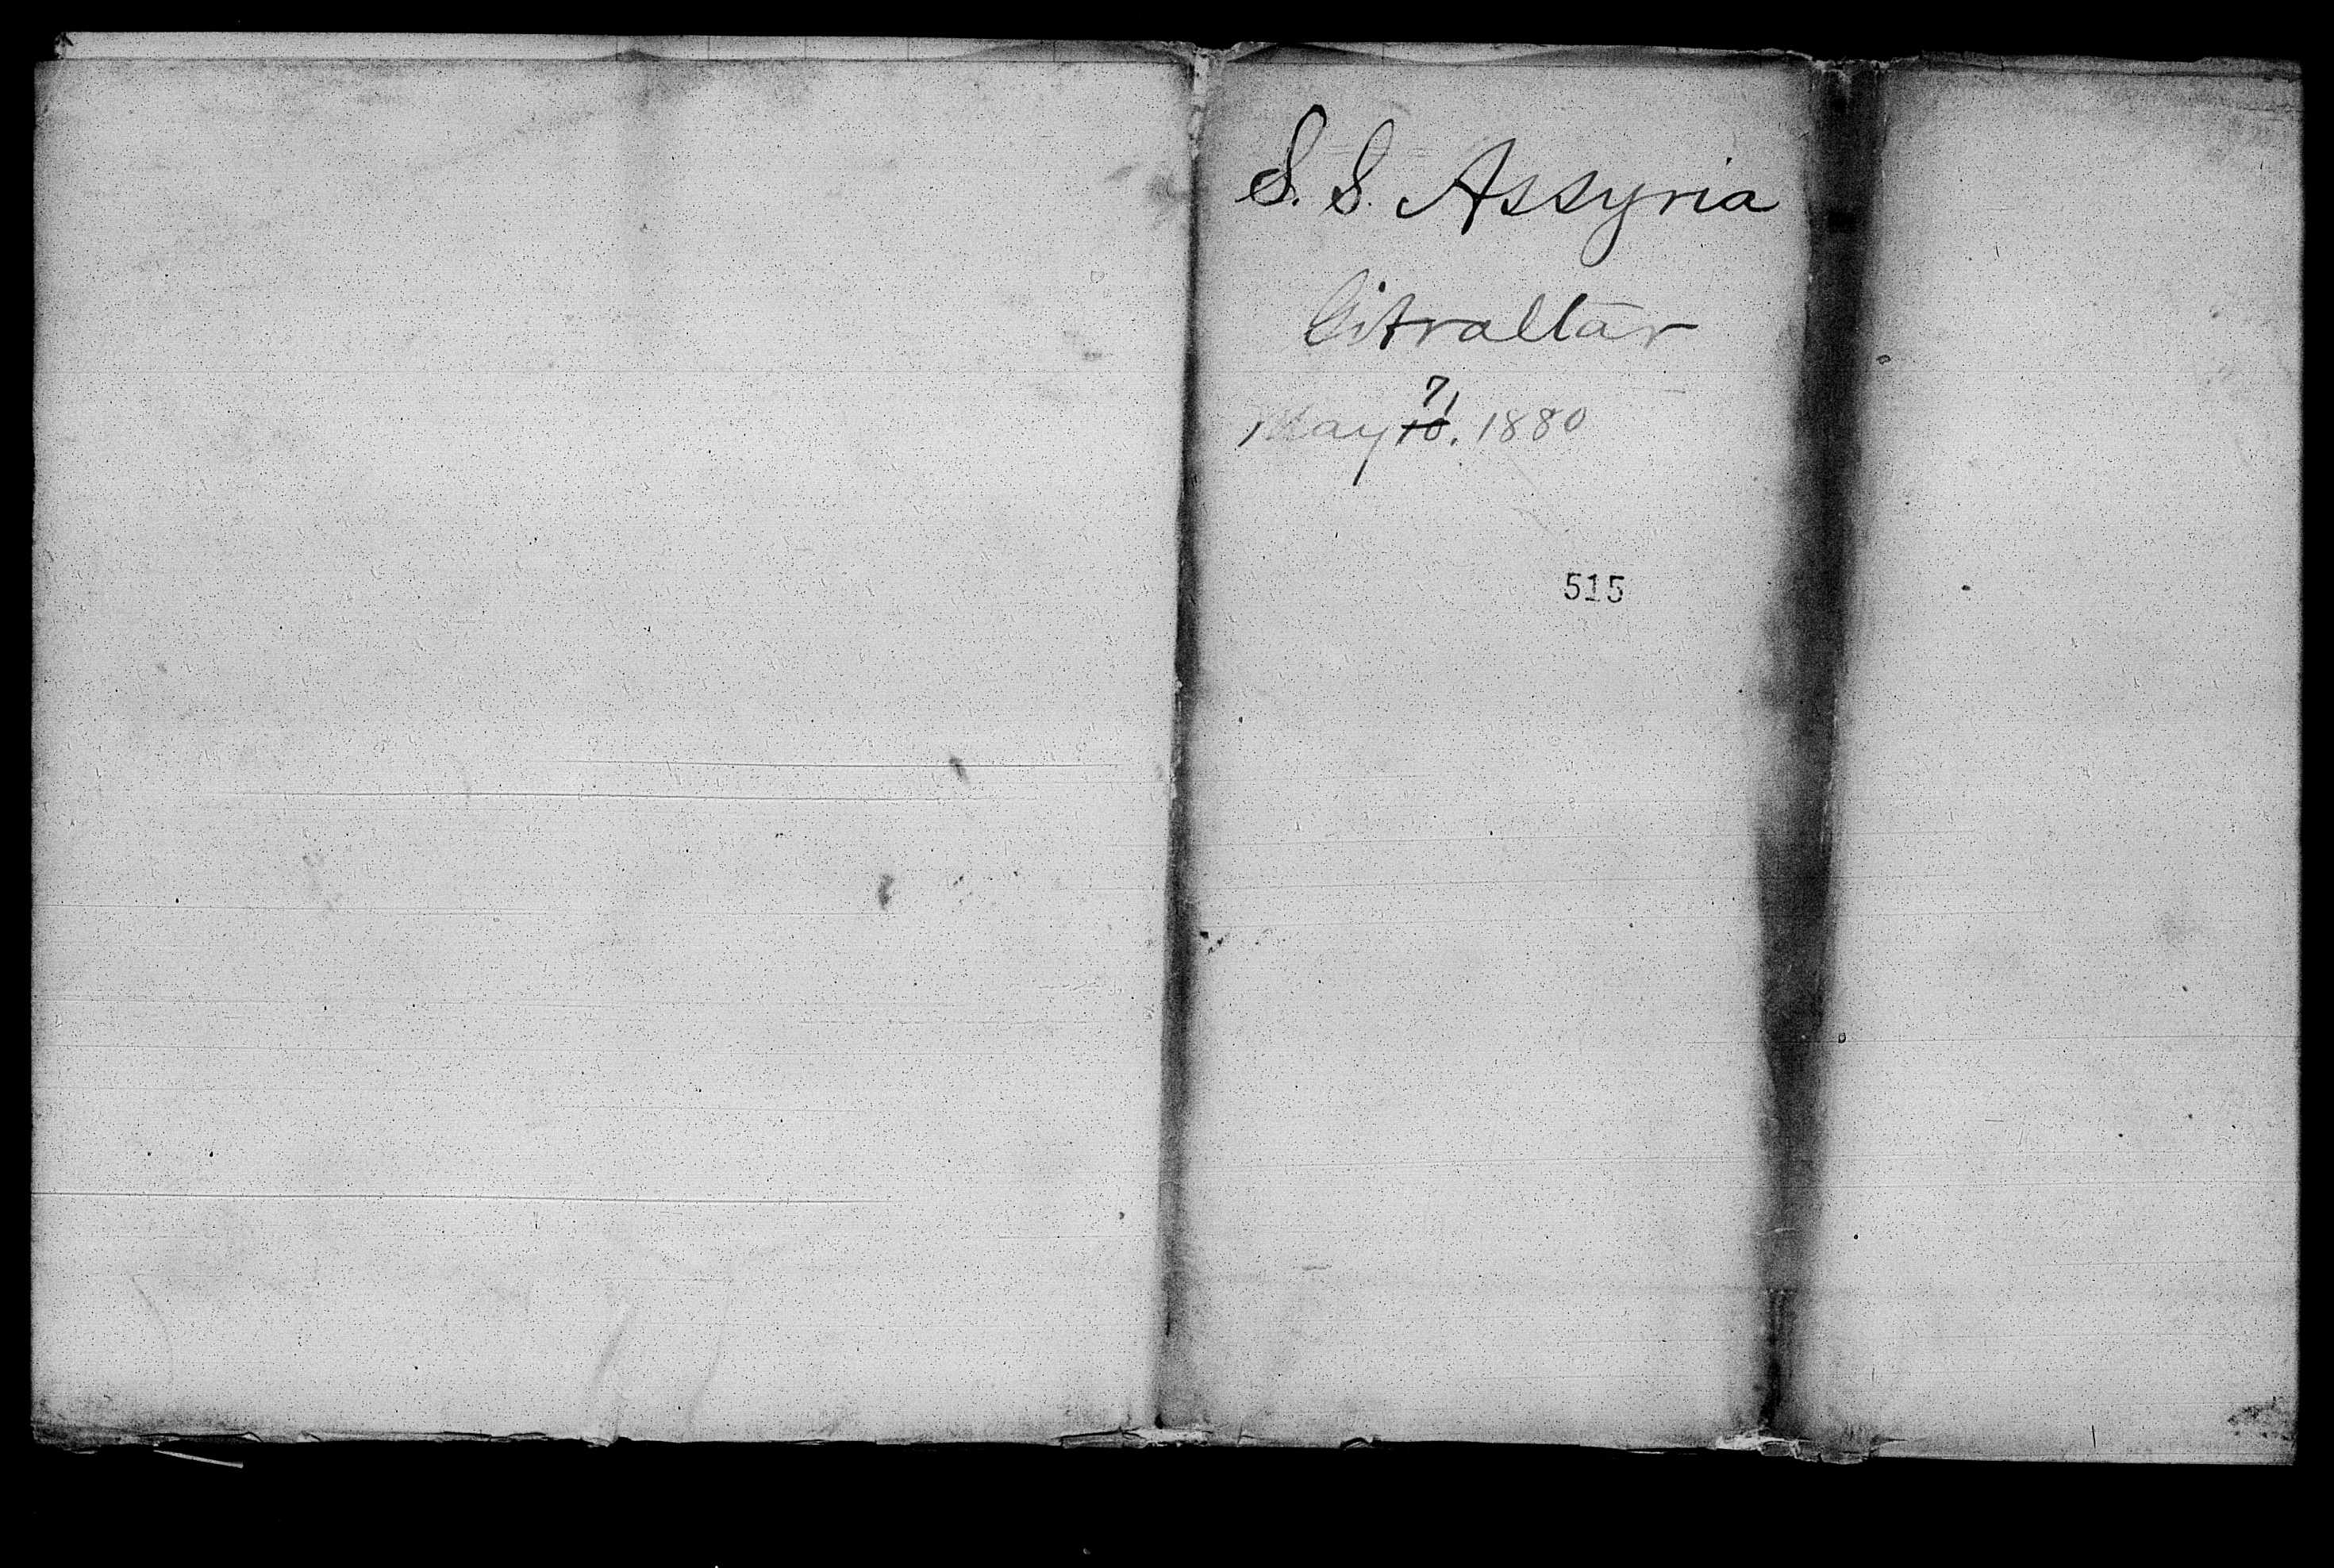 S. S. Assyria
Gibraltar
7/
May 10. 1880
515